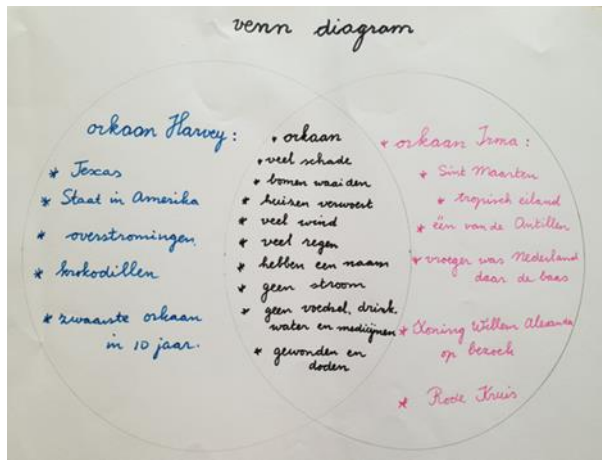 venn diagram
orkaan Harvey:
* Texas
* Staat in Amerika
* overstromingen.
* krokodillen
* zwaarste orkaan
in 10 jaar.
* orkaan
* veel schade
* bomen waaiden
* huizen verwoest
* veel wind
* veel regen
* hebben een naam
* geen stroom
* geen voedsel, drink.
water en medicijnen
* gewonden en
doden
* orkaan Irma:
* Sint Maarten
* tropisch eiland
* één van de Antillen
* vroeger was Nederland
daar de baas
* Koning Willem
op bezoek
* Rode Kruis